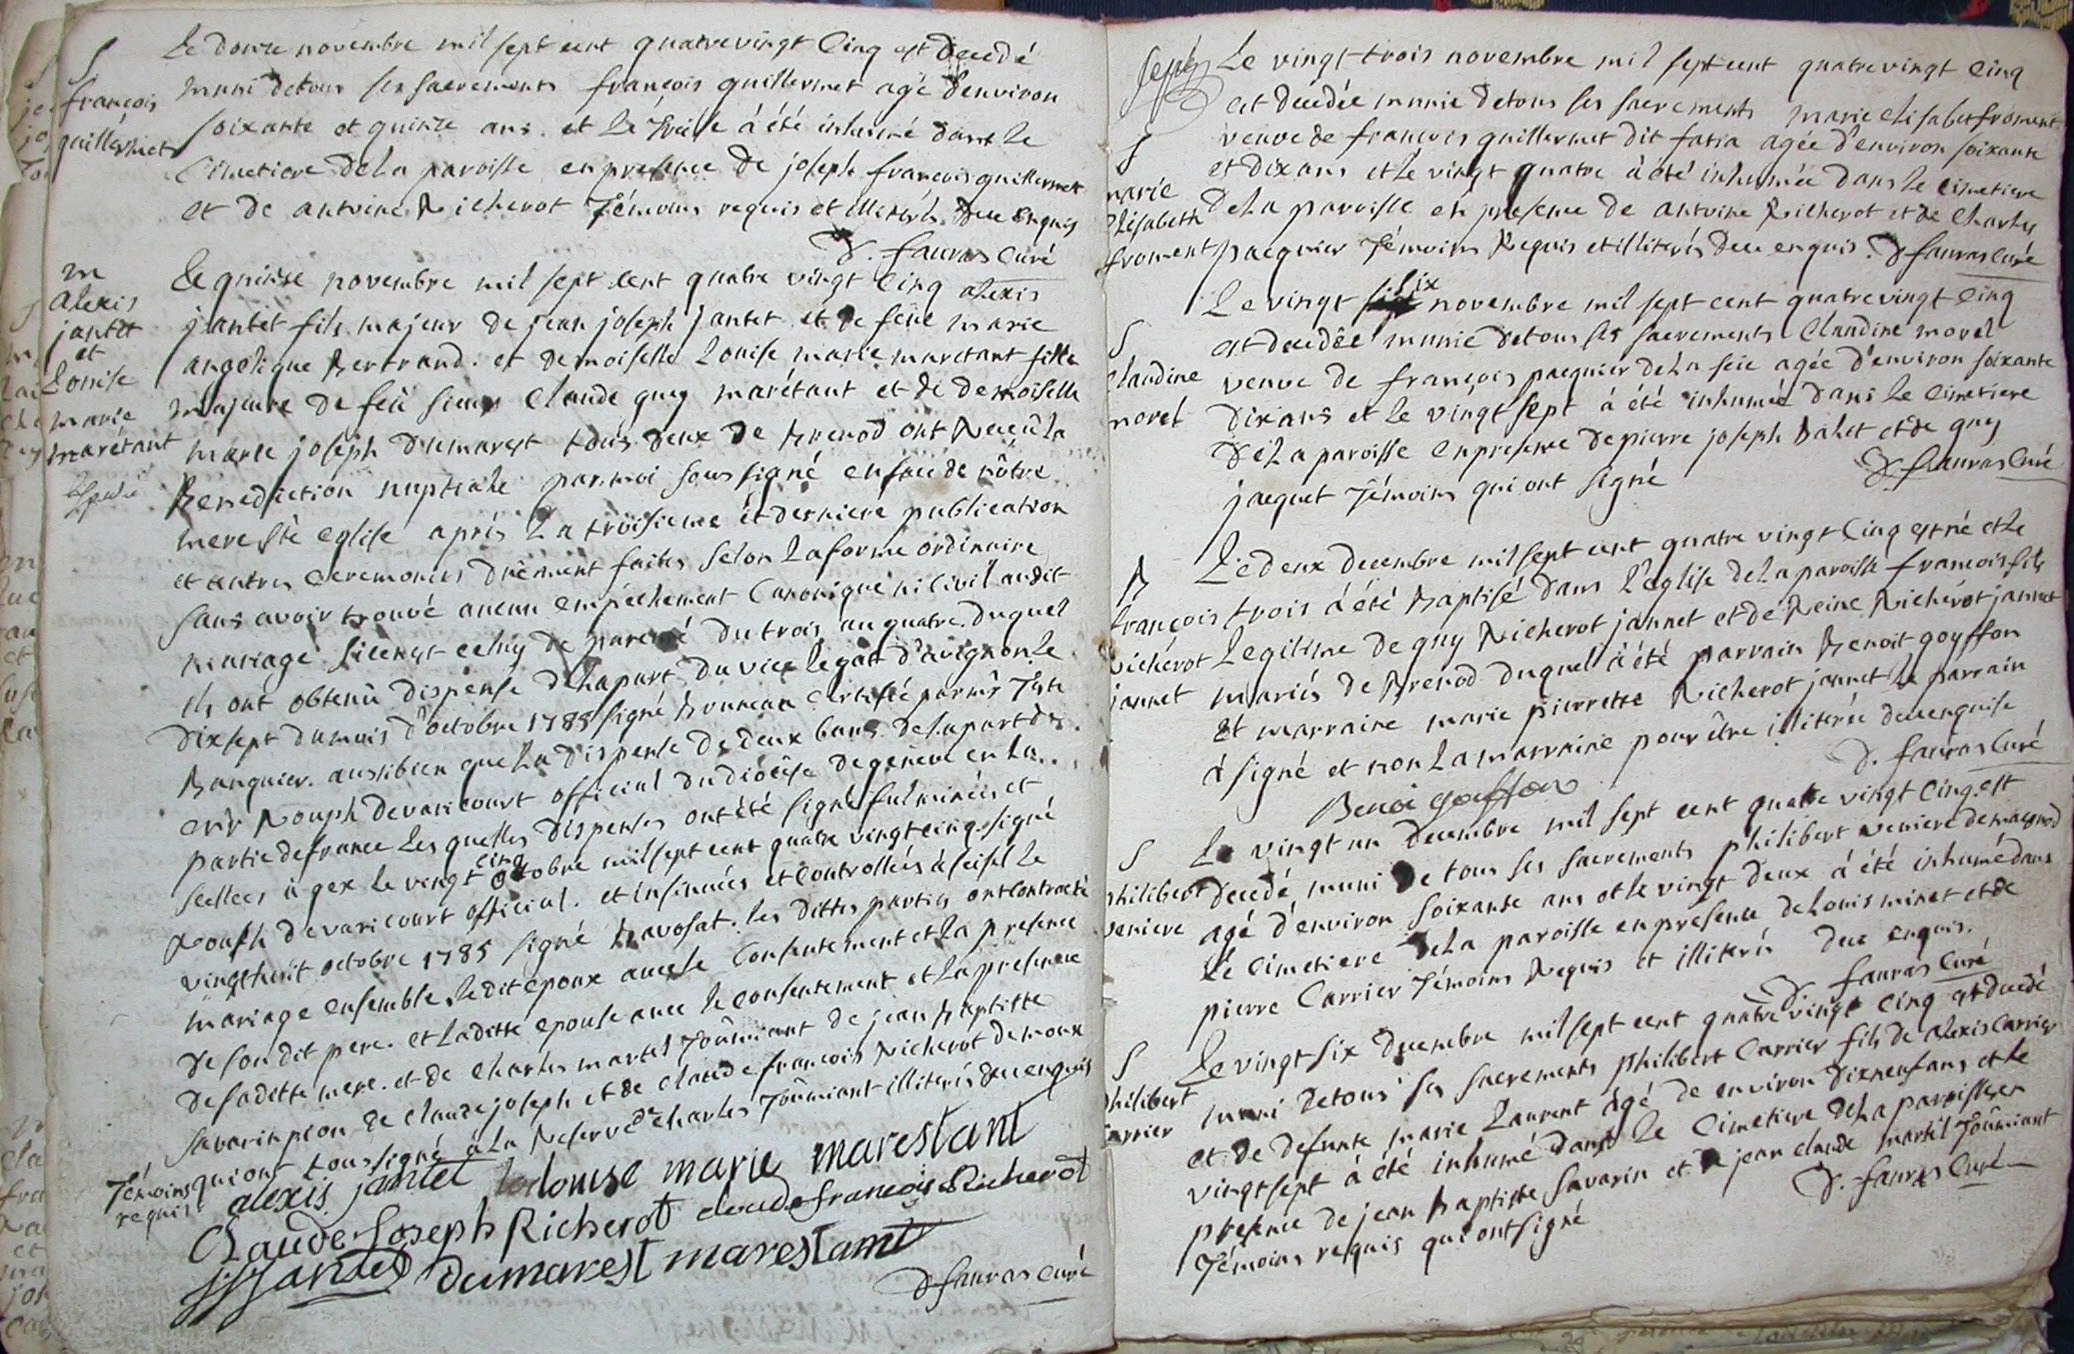 S
françois
guillermet
Le douze novembre mil sept cent quatre vingt Cinq est Decedé
muni de tous ses sacrements françois guillermet agé d'environ
soixante et quinze ans. et le treize à été inhumé dans le
Cimetiere de la paroisse en presence de joseph françois guillermet
et de antoine Richerot Témoins requis et illiterés Due enquis
D. fauras Curé
m
alexis
jantet
et
Louise
marie
marétant
Le quinze novembre mil sept cent quatre vingt Cinq alexis
jantet fils majeur de jean joseph jantet et de feüe marie
angelique Bertrand. et demoiselle Louise marie maretant fille
majeure de feü sieur Claude guy marétant et de demoiselle
marie joseph Dumarest tous deux de Brenod ont Receü la
Benediction nuptiale par moi soussigné en face de nôtre
mere Ste eglise aprés La troisieme et derniere publication
et autres Ceremonies düement faites selon la forme ordinaire
sans avoir trouvé aucun empêchement Canonique ni Civil audit
mariage si cen'est celuy de parenté du trois au quatre. duquel
ils ont obtenû dispense de la part du vice legat d'avignon le
Dix sept du mois d'octobre 1785 signé Bruneau Certifié par mr
Banquier. aussi bien que La dispense de deux bans de la part de
mr Rouph de varicourt official du diocêse de geneve en La
partie de france Les quelles dispenses ont été signé fulminées et
scellées à gex le vingt cinq octobre mil sept cent quatre vingt cinq. signé
Rouph de varicourt official. et insinuées et controllées à seisel le
vingt huit octobre 1785 signé Bavosat. les dittes parties ont contracté
mariage ensemble le dit epoux avec le Consentement et la presence
de son dit pere. et La ditte epouse avec le consentement et la presence
de sa ditte mere. et de Charles martel Toûrniant de jean Baptiste
savarin pion de Claude joseph et de claude françois Richerot de
Témoins requis qui ont tous signé à La Reserve de Charles Toûrniant illiterés due enquis
alexis jantet louise marie marestant
Claude-Joseph Richerot claude françois Richerot
jjjantet dumarest marestant
D fauras Curé
S
marie
Elisabeth
froment
Le vingt-trois novembre mil sept cent quatre vingt Cinq
est decedée munie de tous ses sacrements marie elisabet froment
veuve de françois guillermet dit fatra agée d'environ soixante
et dix ans et le vingt quatre à été inhumée dans le Cimetiere
de La paroisse en presence de antoine Richerot et de Charles
pacquier Témoins Requis et illiterés due enquis. D fauras Curé
S
Claudine
morel
Le vingt six novembre mil sept cent quatre vingt Cinq
est decedée munie de tous ses sacrements Claudine morel
veuve de françois pacquier de La scie agée d'environ soixante
dix ans et le vingt sept à été inhumée dans le Cimetiere
de La paroisse en presence de pierre joseph Balet et de guy
jacquet Témoins qui ont signé
D. fauras Curé
B
françois
Richerot
jannet
Le deux decembre mil sept cent quatre vingt Cinq est né et le
trois à été Baptisé dans L'eglise de La paroisse françois fils
Legitime de guy Richerot jannet et de Reine Richerot jannet
mariés de Brenod duquel à été parrain Benoit goyffon
et marraine marie pierrette Richerot jannet le parrain
à signé et non La marraine pour être illiterée deue enquise
Benoi goiffon
D. fauras Curé
S
philibert
veniere
Le vingt un decembre mil sept cent quatre vingt Cinq est
decedé muni de tous ses sacrements philibert veniere de macognod
agé d'environ soixante ans et le vingt deux à été inhumé dans
le Cimetiere de La paroisse en presence de Louis minet et de
pierre Carrier Témoins Requis et illiterés due enquis.
D. fauras Curé
S
philibert
Carrier
Le vingt six decembre mil sept cent quatre vingt Cinq est decedé
muni de tous ses sacrements philibert Carrier fils de alexis Carrier
et de defunte marie Laurent agé de environ dixneuf ans et le
vingt sept à été inhumé dans le Cimetiere de La paroisse en
presence de jean Baptiste savarin et de jean claude martel Toûrniant
Témoins requis qui ont signé
D. fauras Curé